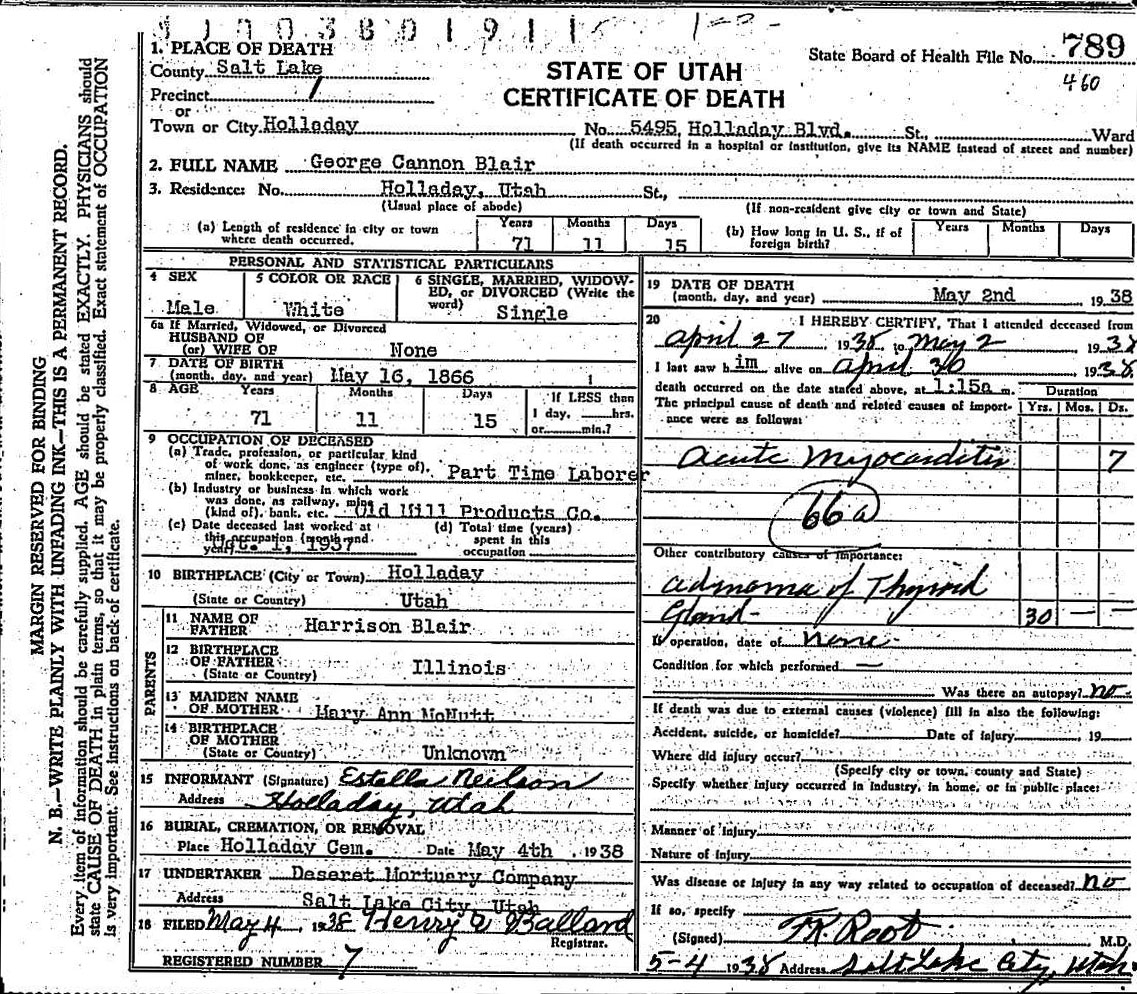 1 0 0 3 8 0 1 9 1 1
State Board of Health File No. 789
460
1. PLACE OF DEATH
County Salt Lake
Precinct 1
or
STATE OF UTAH
CERTIFICATE OF DEATH
Town or City Holladay No. 5495, Holladay Blvd. St., Ward
(If death occurred in a hospital or institution, give its NAME instead of street and number)
2. FULL NAME George Cannon Blair
3. Residence: No. Holladay, Utah St.,
(Usual place of abode) (If non-resident give city or town and State)
(a) Length of residence in city or town where death occurred. Years 71 Months 11 Days 15
(b) How long in U. S., if of foreign birth? Years Months Days
PERSONAL AND STATISTICAL PARTICULARS
4 SEX Male
5 COLOR OR RACE White
6 SINGLE, MARRIED, WIDOWED, or DIVORCED (Write the word) Single
6a If Married, Widowed, or Divorced
HUSBAND OF
(or) WIFE OF None
7 DATE OF BIRTH
(month, day, and year) May 16, 1866
8 AGE Years 71 Months 11 Days 15
If LESS than
1 day, hrs.
or min.?
9 OCCUPATION OF DECEASED
(a) Trade, profession, or particular kind
of work done, as engineer (type of),
miner, bookkeeper, etc. Part Time Laborer
(b) Industry or business in which work
was done, as railway, mine
(kind of), bank, etc. Old Mill Products Co.
(c) Date deceased last worked at
this occupation (month and
year) Oct. 1, 1937
(d) Total time (years)
spent in this
occupation
10 BIRTHPLACE (City or Town) Holladay
(State or Country) Utah
PARENTS
11 NAME OF
FATHER Harrison Blair
12 BIRTHPLACE
OF FATHER
(State or Country) Illinois
13 MAIDEN NAME
OF MOTHER Mary Ann McNutt
14 BIRTHPLACE
OF MOTHER
(State or Country) Unknown
15 INFORMANT (Signature) Estella Neilson
Address Holladay, Utah
16 BURIAL, CREMATION, OR REMOVAL
Place Holladay Cem. Date May 4th, 1938
17 UNDERTAKER Deseret Mortuary Company
Address Salt Lake City, Utah
18 FILED May 4, 1938 Henry Ballard
Registrar.
REGISTERED NUMBER 7
19 DATE OF DEATH
(month, day, and year) May 2nd, 1938
20 I HEREBY CERTIFY, That I attended deceased from
April 27 1938 to May 2 1938
I last saw him alive on April 30 1938
death occurred on the date stated above, at 1:15a m.
Duration
The principal cause of death and related causes of importance were as follows:
Yrs. Mos. Ds.
Acute Myocarditis 7
66a
Other contributory causes of importance:
Adnoma of Thyroid
Gland 30 — —
If operation, date of none
Condition for which performed —
Was there an autopsy? no
If death was due to external causes (violence) fill in also the following:
Accident, suicide, or homicide? Date of injury, 19
Where did injury occur?
(Specify city or town, county and State)
Specify whether injury occurred in industry, in home, or in public place:
Manner of injury
Nature of injury
Was disease or injury in any way related to occupation of deceased? no
If so, specify
(Signed) F.K. Root M.D.
5-4 1938 Address Salt Lake City, Utah.
MARGIN RESERVED FOR BINDING
N. B.—WRITE PLAINLY WITH UNFADING INK—THIS IS A PERMANENT RECORD.
Every item of information should be carefully supplied. AGE should be stated EXACTLY. PHYSICIANS should
state CAUSE OF DEATH in plain terms, so that it may be properly classified. Exact statement of OCCUPATION
is very important. See instructions on back of certificate.